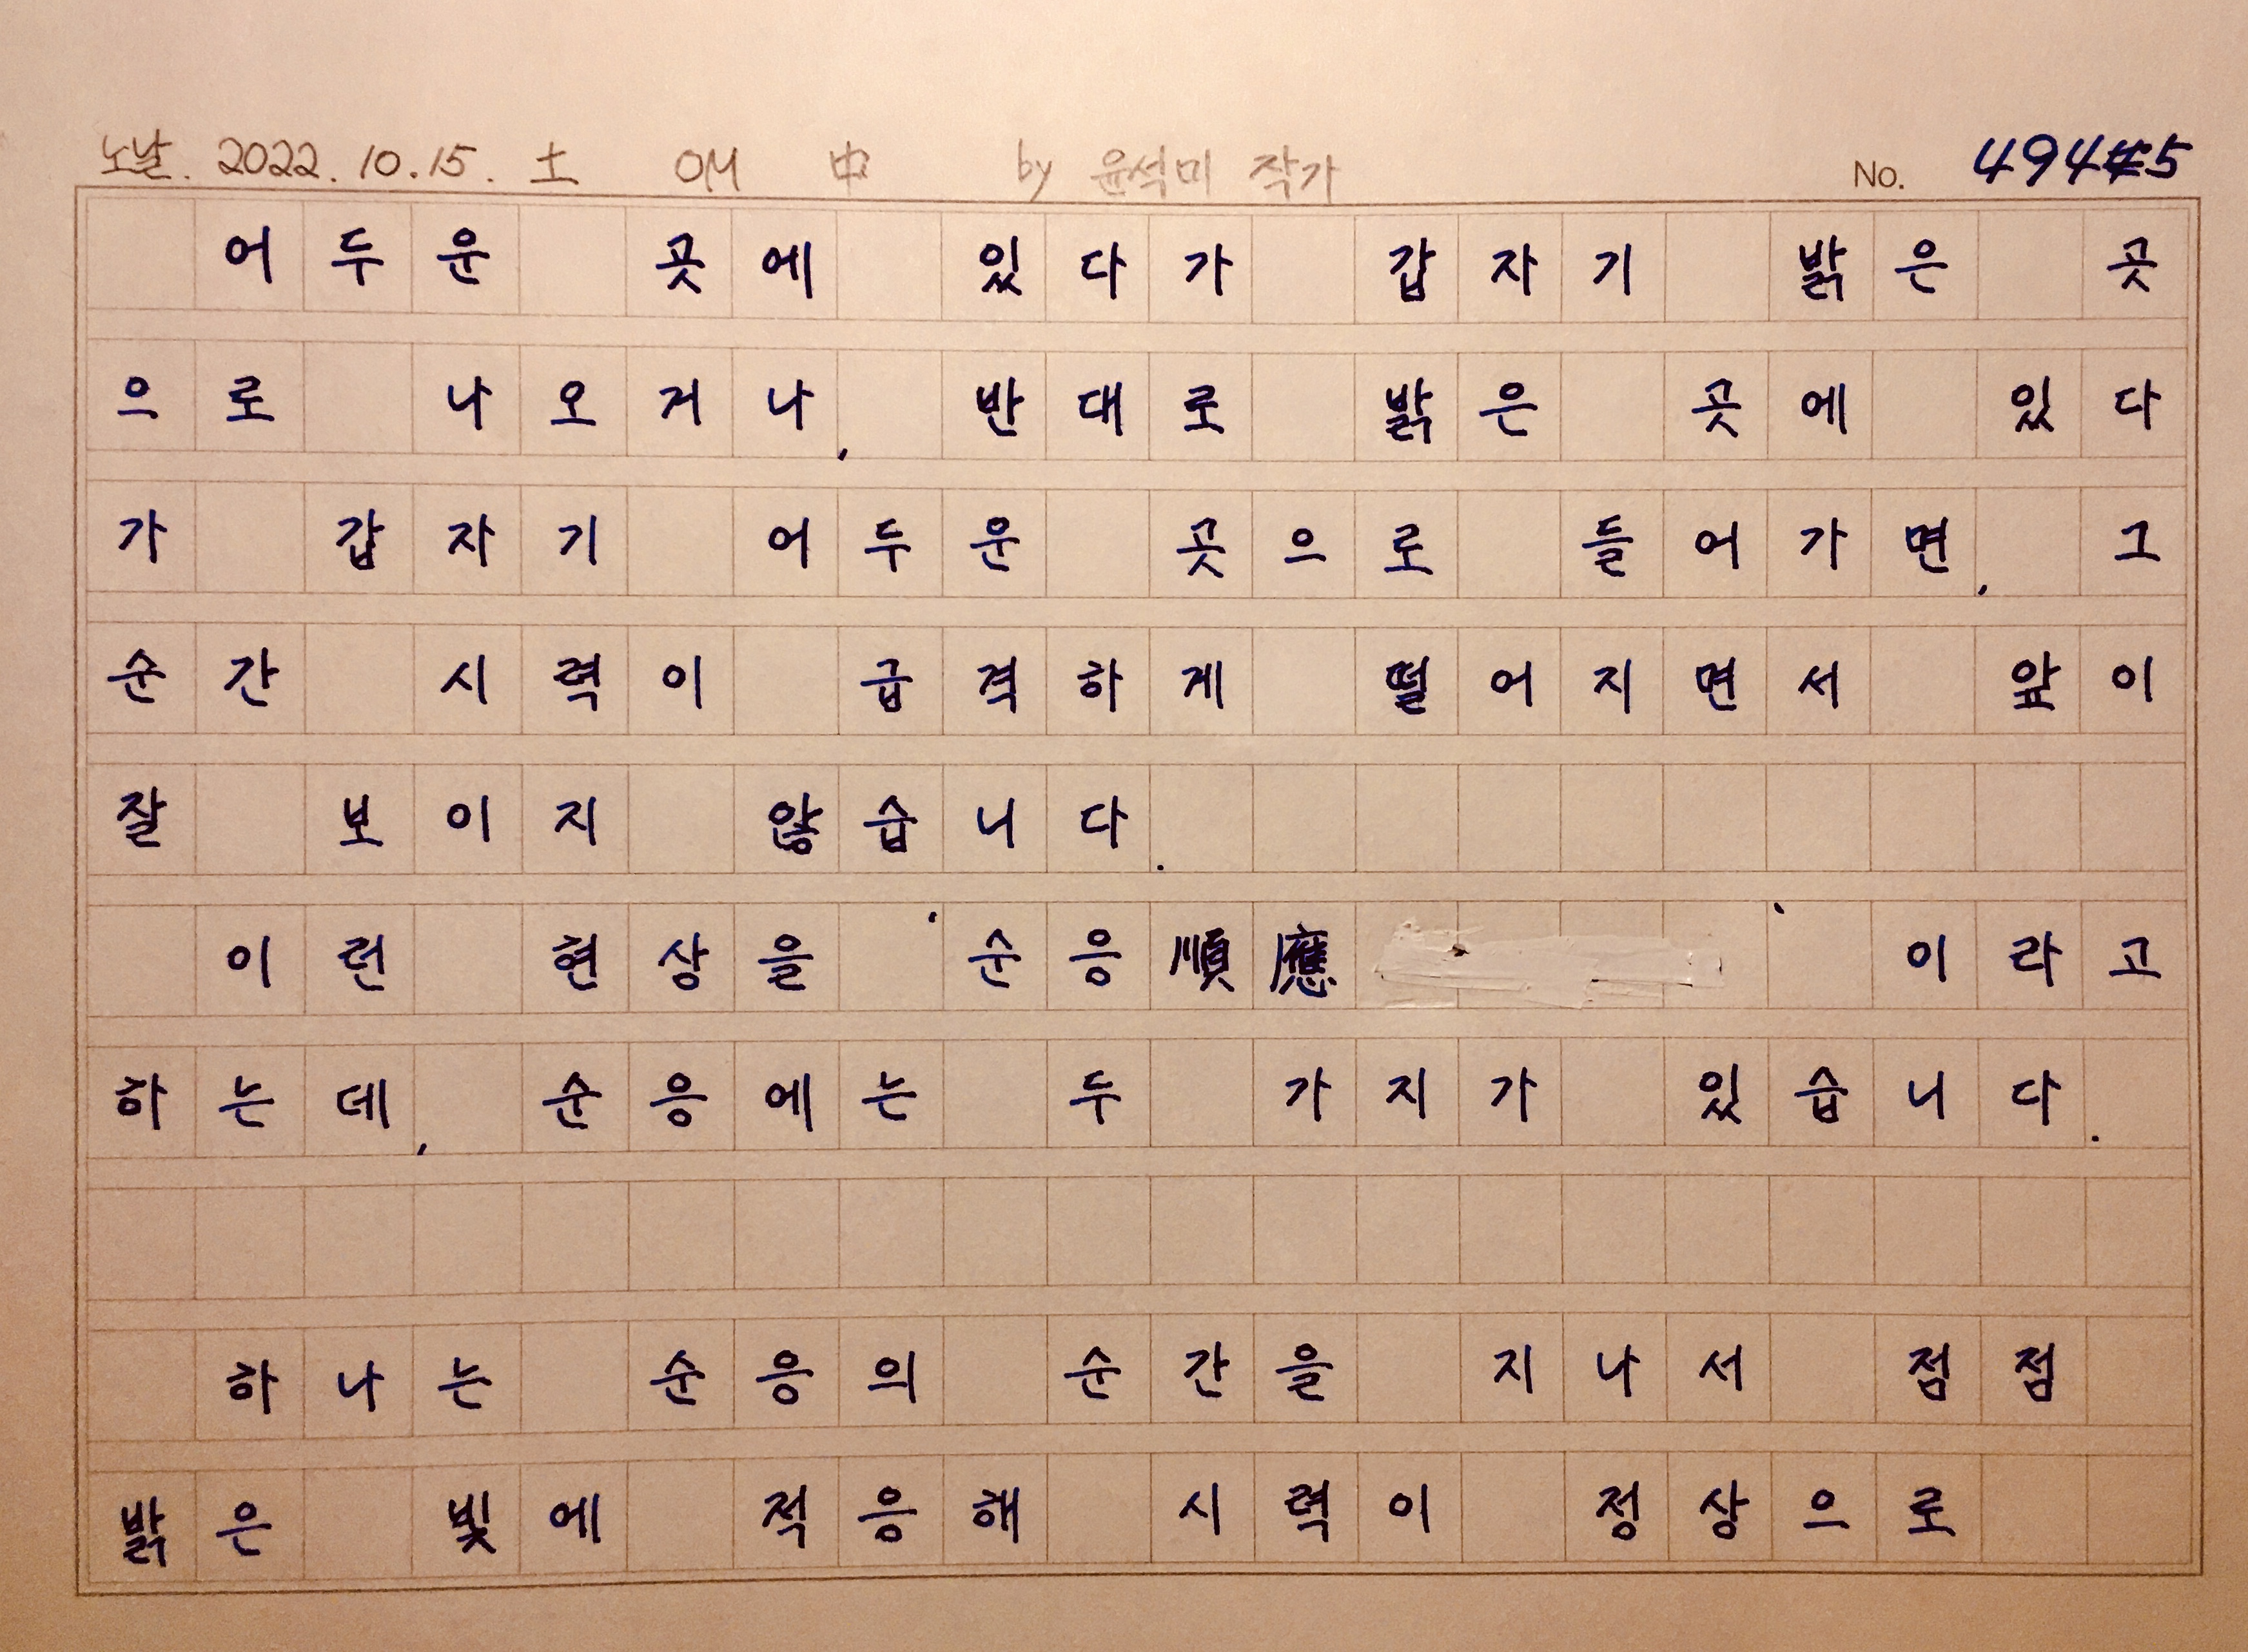 노날. 2022. 10. 15. 土 OM 中 by 윤석미 작가
No. 4945
어두운 곳에 있다가 갑자기 밝은 곳
으로 나오거나, 반대로 밝은 곳에 있다
가 갑자기 어두운 곳으로 들어가면, 그
순간 시력이 급격하게 떨어지면서 앞이
잘 보이지 않습니다.
이런 현상을 '순응順應' 이라고
하는데, 순응에는 두 가지가 있습니다.
하나는 순응의 순간을 지나서 점점
밝은 빛에 적응해 시력이 정상으로